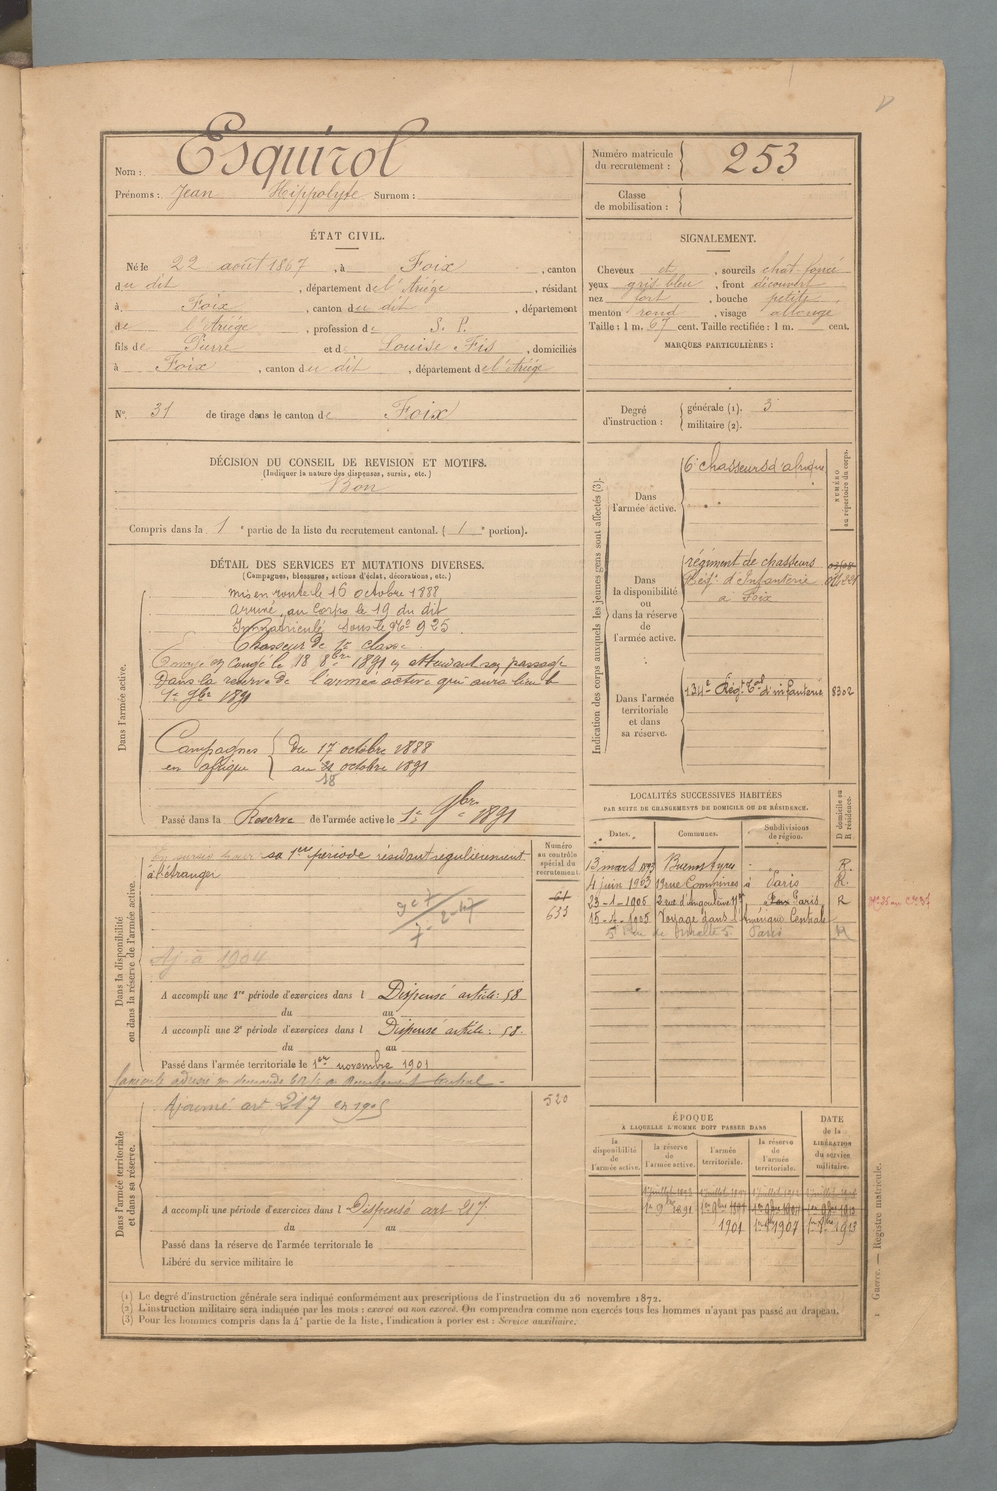 Nom : Esquirol
Prénoms : Jean Hippolyte Surnom :
Numéro matricule du recrutement : 253
Classe de mobilisation :
ÉTAT CIVIL.
Né le 22 août 1867, à Foix, canton
du dit, département de l'Ariège, résidant
à Foix, canton du dit, département
de l'Ariège, profession de S. P.
fils de Pierre et de Louise Fis, domiciliés
à Foix, canton du dit, département de l'Ariège
N° 31 de tirage dans le canton de Foix
SIGNALEMENT.
Cheveux et, sourcils chat foncé
yeux gris bleu, front découvert
nez fort, bouche petite,
menton rond, visage allongé
Taille : 1 m. 67 cent. Taille rectifiée : 1 m. cent.
MARQUES PARTICULIÈRES :
Degré d'instruction : générale (1). 3
militaire (2).
DÉCISION DU CONSEIL DE REVISION ET MOTIFS.
(Indiquer la nature des dispenses, sursis, etc.)
Bon
Compris dans la 1e partie de la liste du recrutement cantonal. (1e portion).
DÉTAIL DES SERVICES ET MUTATIONS DIVERSES.
(Campagnes, blessures, actions d'éclat, décorations, etc.)
Dans l'armée active.
mis en route le 16 octobre 1888
arrivé au Corps le 19 du dit
Immatriculé sous le No 925
Chasseur de 1e classe
Envoyé en congé le 18 8bre 1891 en attendant son passage
Dans la réserve de l'armée active qui aura lieu le
1er 9bre 1891
Campagnes en afrique
du 17 octobre 1888
au 31 octobre 1891
18
Passé dans la Réserve de l'armée active le 1er 9bre 1891
Dans la disponibilité ou dans la réserve de l'armée active.
Numéro au contrôle spécial du recrutement.
sa 1ere période résidant régulièrement
à l'étranger
61
633
Aj. à 1904
A accompli une 1re période d'exercices dans l Dispensé article : 58
du au
A accompli une 2e période d'exercices dans l Dispensé article : 58.
du au
Passé dans l'armée territoriale le 1er novembre 1901
Dans l'armée territoriale et dans sa réserve.
Ajourné art 217 en 1905
520
A accompli une période d'exercices dans l Dispensé art 217
du au
Passé dans la réserve de l'armée territoriale le
Libéré du service militaire le
Indication des corps auxquels les jeunes gens sont affectés (3).
NUMÉRO au répertoire du corps.
Dans l'armée active.
6e chasseurs d'afrique
Dans la disponibilité ou dans la réserve de l'armée active.
régiment de chasseurs
Régt d'Infanterie
à Foix
Dans l'armée territoriale et dans sa réserve.
134e Régt Tal d'infanterie 8302
LOCALITÉS SUCCESSIVES HABITÉES
PAR SUITE DE CHANGEMENTS DE DOMICILE OU DE RÉSIDENCE.
Dates. Communes. Subdivisions de région. D domicile ou R résidence.
13 mars 1893 Buenos Ayres R.
4 juin 1903 19 rue Combrines à Paris R.
23-1-1905 2 rue d'Angoulême Paris R
15-4-1905 Voyage dans l'Amérique Centrale
Paris R
ÉPOQUE
A LAQUELLE L'HOMME DOIT PASSER DANS
la disponibilité de l'armée active.
la réserve de l'armée active.
l'armée territoriale.
la réserve de l'armée territoriale.
DATE de la LIBÉRATION du service militaire.
1er 9bre 1891 1er 9bre 1901 1er 9bre 1907 1er 9bre 1913
(1) Le degré d'instruction générale sera indiqué conformément aux prescriptions de l'instruction du 26 novembre 1872.
(2) L'instruction militaire sera indiquée par les mots : exercé ou non exercé. On comprendra comme non exercés tous les hommes n'ayant pas passé au drapeau.
(3) Pour les hommes compris dans la 4e partie de la liste, l'indication à porter est : Service auxiliaire.
1 Guerre. — Registre matricule.